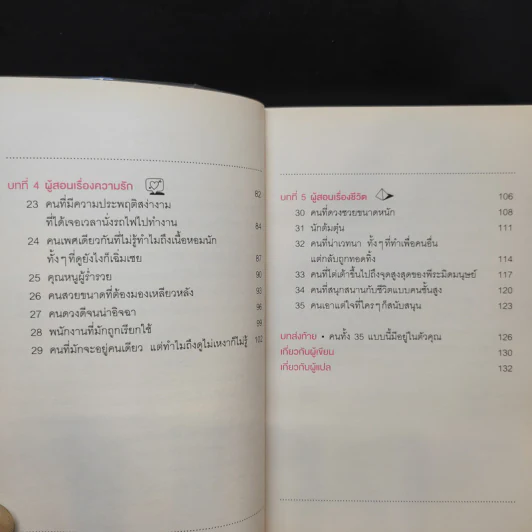 บทที่ 4 ผู้สอนเรื่องความรัก 82
23 คนที่มีความประพฤติสง่างาม
ที่ได้เจอเวลานั่งรถไฟไปทำงาน 84
24 คนเพศเดียวกันที่ไม่รู้ทำไมถึงเนื้อหอมนัก
ทั้งๆ ที่ดูยังไงก็เฉิ่มเชย 87
25 คุณหนูผู้ร่ำรวย 90
26 คนสวยขนาดที่ต้องมองเหลียวหลัง 93
27 คนดวงดีจนน่าอิจฉา 96
28 พนักงานที่มักถูกเรียกใช้ 99
29 คนที่มักจะอยู่คนเดียว แต่ทำไมถึงดูไม่เหงาก็ไม่รู้ 102
บทที่ 5 ผู้สอนเรื่องชีวิต 106
30 คนที่ดวงซวยขนาดหนัก 108
31 นักต้มตุ๋น 111
32 คนที่น่าเวทนา ทั้งๆ ที่ทำเพื่อคนอื่น
แต่กลับถูกทอดทิ้ง 114
33 คนที่ไต่เต้าขึ้นไปถึงจุดสูงสุดของพีระมิดมนุษย์ 117
34 คนที่สนุกสนานกับชีวิตแบบคนชั้นสูง 120
35 คนเอาแต่ใจที่ใครๆ ก็สนับสนุน 123
บทส่งท้าย • คนทั้ง 35 แบบนี้มีอยู่ในตัวคุณ 126
เกี่ยวกับผู้เขียน 130
เกี่ยวกับผู้แปล 132